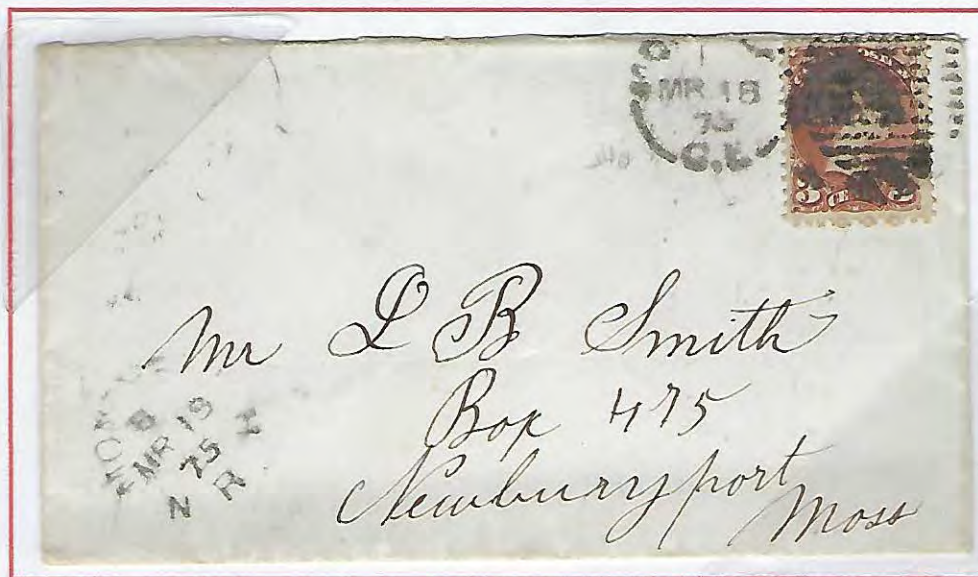 MR 18
75
Q.E
3 CENTS
Mr L B Smith
Box 475
Newburyport
Mass
MON
B
MR 19
75
N R